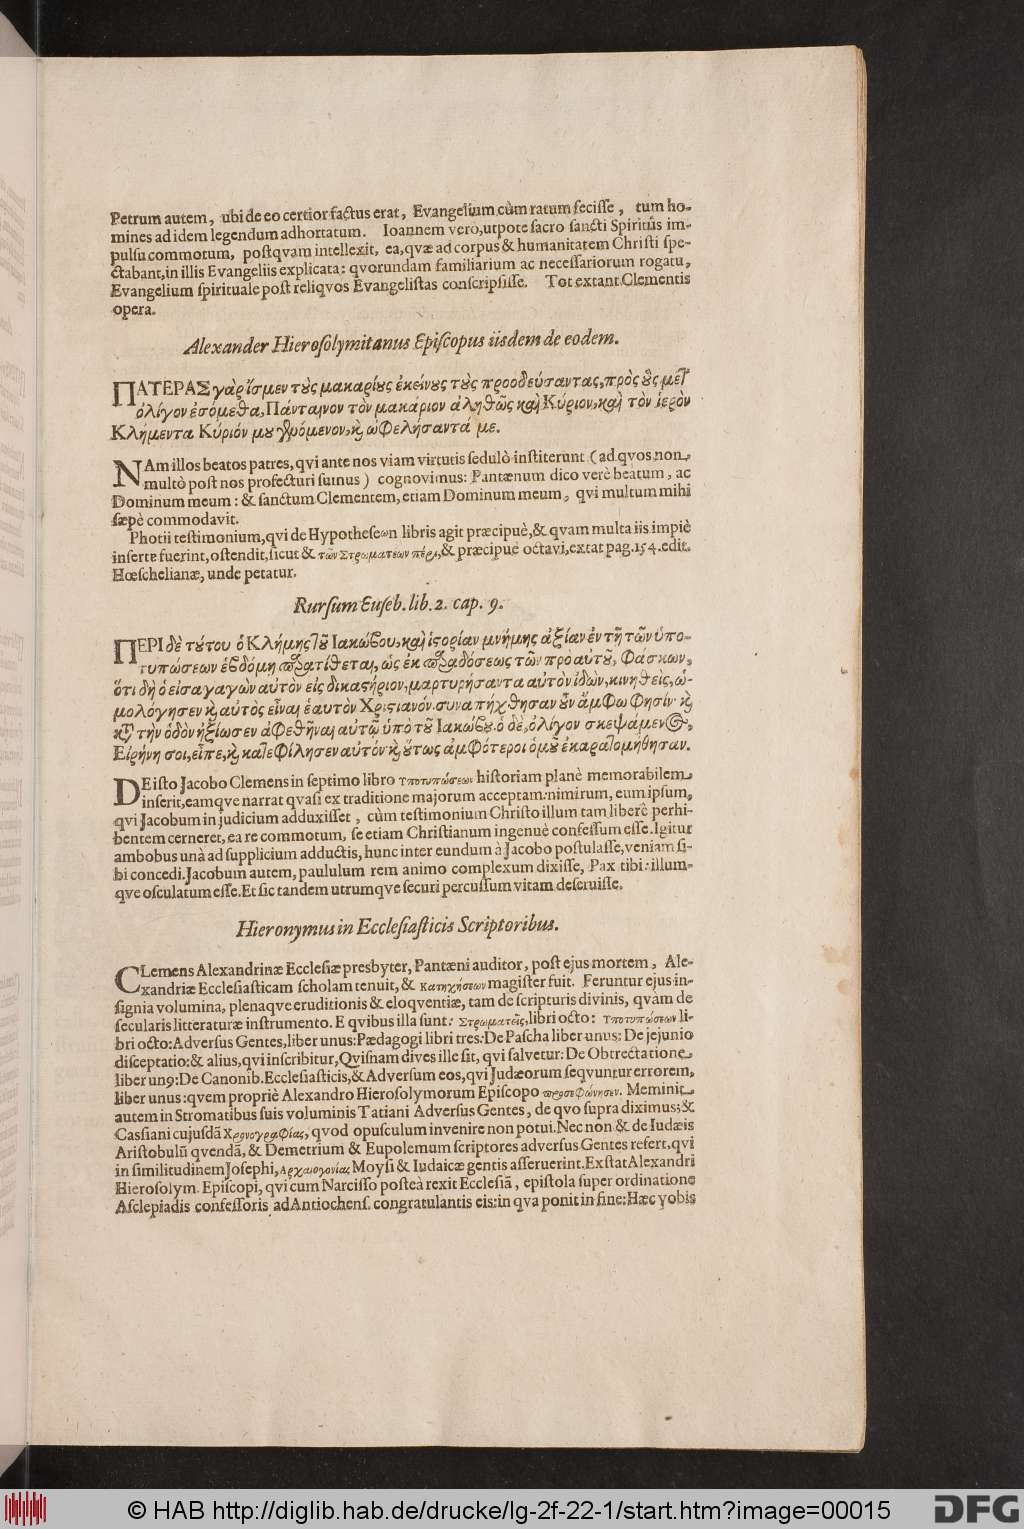 Petrum autem, ubi de eo certior factus erat, Evangelium cùm ratum fecisse, tum ho-
mines ad idem legendum adhortatum. Ioannem verò, utpote sacro sancti Spiritûs im-
pulsu commotum, postqvam intellexit, ea, qvæ ad corpus & humanitatem Christi spe-
ctabant, in illis Evangeliis explicata: qvorundam familiarium ac necessariorum rogatu,
Evangelium spirituale post reliqvos Evangelistas conscripsisse. Tot extant Clementis
opera.
Alexander Hierosolymitanus Episcopus iisdem de eodem.
ΠΑΤΕΡΑΣ γὰρ ἴσμεν τοὺς μακαρίους ἐκείνους τοὺς προοδεύσαντας, πρὸς οὓς μετ'
ὀλίγον ἐσόμεθα, Πάνταινον τὸν μακάριον ἀληθῶς καὶ Κύριον, καὶ τὸν ἱερὸν
Κλήμεντα Κύριόν μου γενόμενον, καὶ ὠφελήσαντά με.
NAm illos beatos patres, qvi ante nos viam virtutis sedulò institerunt (ad qvos non
multò post nos profecturi sumus) cognovimus: Pantænum dico verè beatum, ac
Dominum meum: & sanctum Clementem, etiam Dominum meum, qvi multum mihi
sæpè commodavit.
Photii testimonium, qvi de Hypotheseων libris agit præcipuè, & qvam multa iis impiè
inserta fuerint, ostendit, sicut & τῶν Στρωματέων πέρι, & præcipuè octavi, extat pag. 154. edit.
Hœschelianæ, unde petatur.
Rursum Euseb. lib. 2. cap. 9.
ΠΕΡΙ δὲ τούτου ὁ Κλήμης τοῦ Ιακώβου, καὶ ἱστορίαν μνήμης ἀξίαν ἐν τῇ τῶν ὑπο-
τυπώσεων ἑβδόμῃ παρατίθεται, ὡς ἐκ παραδόσεως τῶν πρὸ αὐτοῦ, φάσκων,
ὅτι δὴ ὁ εἰσαγαγὼν αὐτὸν εἰς δικαστήριον, μαρτυρήσαντα αὐτὸν ἰδὼν, κινηθεὶς, ὡ-
μολόγησεν καὶ αὐτὸς εἶναι ἑαυτὸν Χριστιανόν. συναπήχθησαν οὖν ἄμφω φησὶν καὶ
κατὰ τὴν ὁδὸν ἠξίωσεν ἀφεθῆναι αὐτῷ ὑπὸ τοῦ Ιακώβου. ὁ δὲ, ὀλίγον σκεψάμενος,
Εἰρήνη σοι, εἶπε, καὶ κατεφίλησεν αὐτόν. καὶ οὕτως ἀμφότεροι ὁμοῦ ἐκαρατομήθησαν.
DE isto Jacobo Clemens in septimo libro Ὑποτυπώσεων historiam planè memorabilem
inserit, eamqve narrat qvasi ex traditione majorum acceptam: nimirum, eum ipsum,
qvi Jacobum in judicium adduxisset, cùm testimonium Christo illum tam liberè perhi-
bentem cerneret, ea re commotum, se etiam Christianum ingenuè confessum esse. Igitur
ambobus unà ad supplicium adductis, hunc inter eundum à Jacobo postulasse, veniam si-
bi concedi. Jacobum autem, paululum rem animo complexum dixisse, Pax tibi: illum-
qve osculatum esse. Et sic tandem utrumqve securi percussum vitam deseruisse.
Hieronymus in Ecclesiasticis Scriptoribus.
CLemens Alexandrinæ Ecclesiæ presbyter, Pantæni auditor, post ejus mortem, Ale-
xandriæ Ecclesiasticam scholam tenuit, & κατηχήσεων magister fuit. Feruntur ejus in-
signia volumina, plenaqve eruditionis & eloqventiæ, tam de scripturis divinis, qvàm de
secularis litteraturæ instrumento. E qvibus illa sunt: Στρωματεῖς, libri octo: Ὑποτυπώσεων li-
bri octo: Adversus Gentes, liber unus: Pædagogi libri tres: De Pascha liber unus: De jejunio
disceptatio: & alius, qvi inscribitur, Qvisnam dives ille sit, qvi salvetur: De Obtrectatione
liber un9: De Canonib. Ecclesiasticis, & Adversum eos, qvi Judæorum seqvuntur errorem,
liber unus: qvem propriè Alexandro Hierosolymorum Episcopo προσεφώνησεν. Meminit
autem in Stromatibus suis voluminis Tatiani Adversus Gentes, de qvo supra diximus; &
Cassiani cujusdã Χρονογραφίας, qvod opusculum invenire non potui. Nec non & de Iudæis
Aristobulũ qvendã, & Demetrium & Eupolemum scriptores adversus Gentes refert, qvi
in similitudinem Josephi, Ἀρχαιογονίας Moysi & Iudaicæ gentis asseruerint. Exstat Alexandri
Hierosolym. Episcopi, qvi cum Narcisso posteà rexit Ecclesiã, epistola super ordinatione
Asclepiadis confessoris ad Antiochens. congratulantis eis: in qva ponit in fine: Hæc vobis
© HAB http://diglib.hab.de/drucke/lg-2f-22-1/start.htm?image=00015
DFG